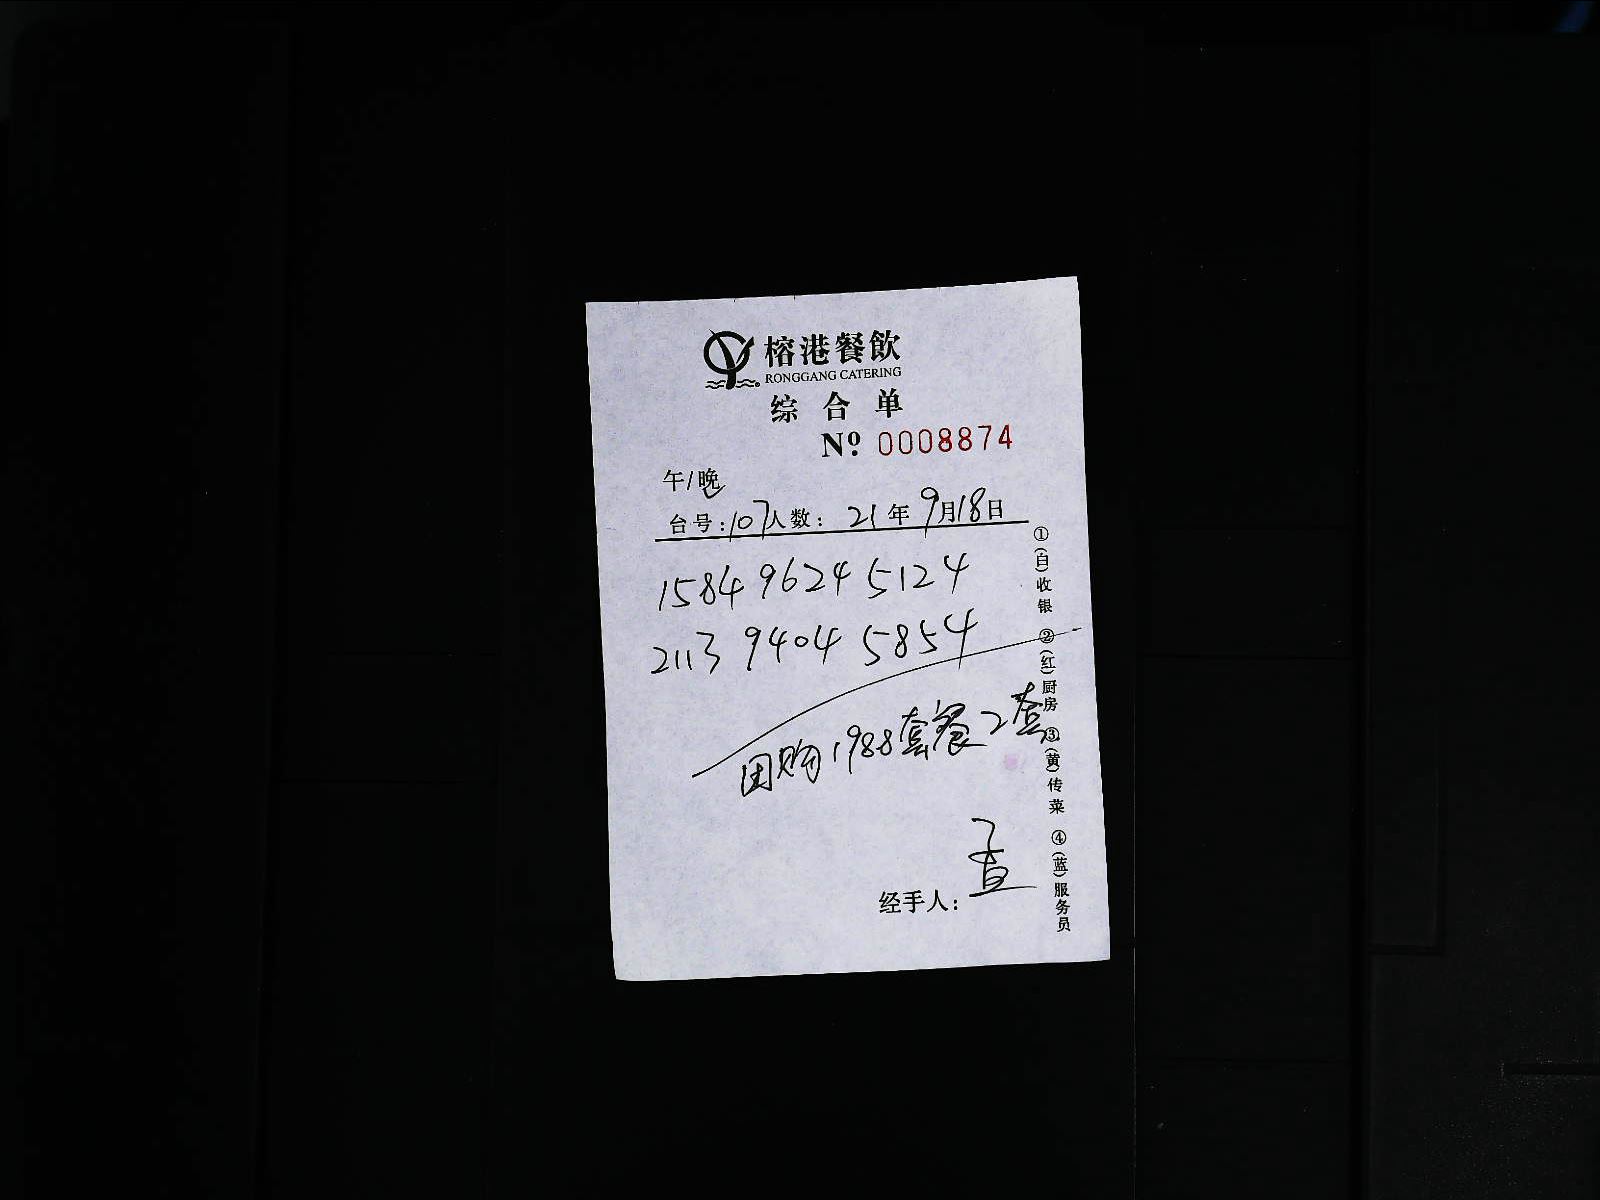 榕港餐飲
RONGGANG CATERING
综合单
Nº: 0008874
午/晚
台号:107人数: 21年9月18日
1584 9624 5124
2113 9404 5854
团购1988套餐2套
经手人:
①(白)收银 ②(红)厨房 ③(黄)传菜 ④(蓝)服务员